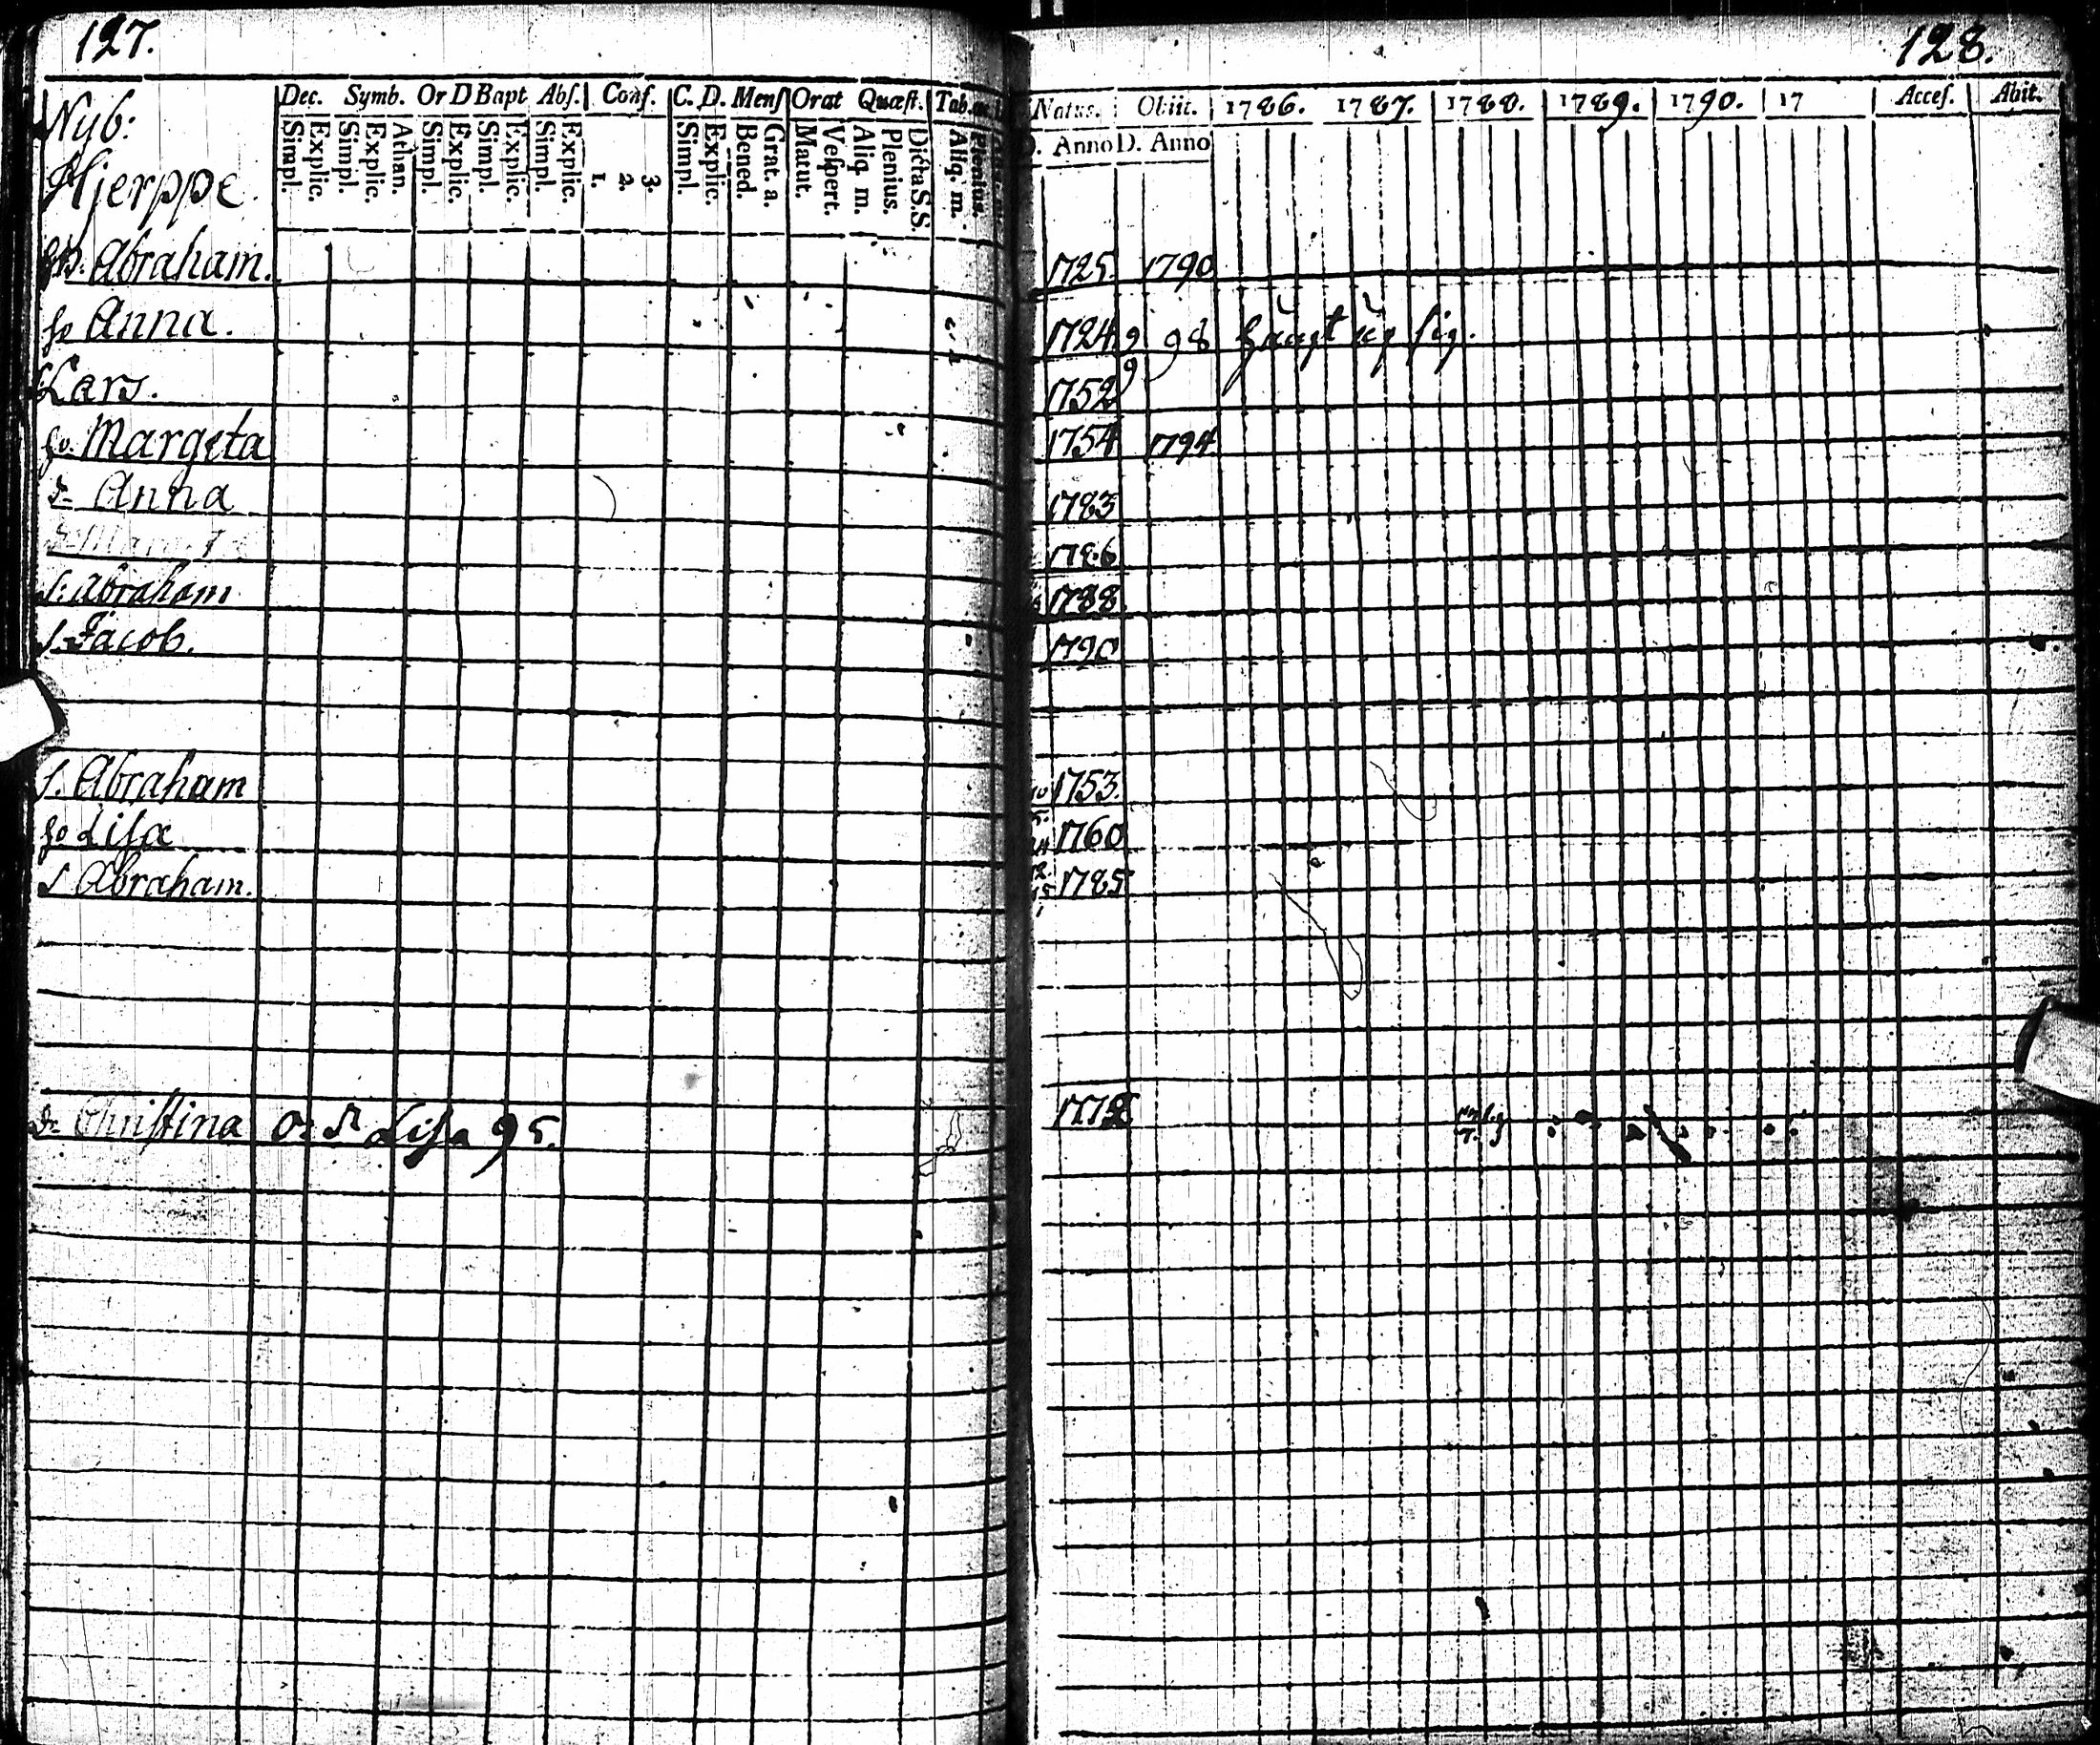 127.
Nyb:
Hjerppe
Dec. Symb. Or D Bapt Abs. Conf. C. D. Mens Orat Quæst. Tab.
Simpl. Explic. Simpl. Explic. Athan. Simpl. Explic. Simpl. Explic. Simpl. Explic. 1. 2. 3. Simpl. Explic. Bened. Grat. a. Matut. Vespert. Aliq m. Plenius. Dicta S.S. Aliq. m. Plenius.
Abraham.
Anna.
Lars.
Margeta
D= Anna
S. Abraham
S. Jacob.
S. Abraham
Lisa
S Abraham.
D= Christina O: D Lisa 95.
128.
Natus. Obiit. 1786. 1787. 1788. 1789. 1790. 17 Acces. Abit.
D. Anno D. Anno
1725. 1790
1724 9/9 98 hängt up sig.
1752
1754 1794
1783
1786
1788
1790
1753.
1760
1785